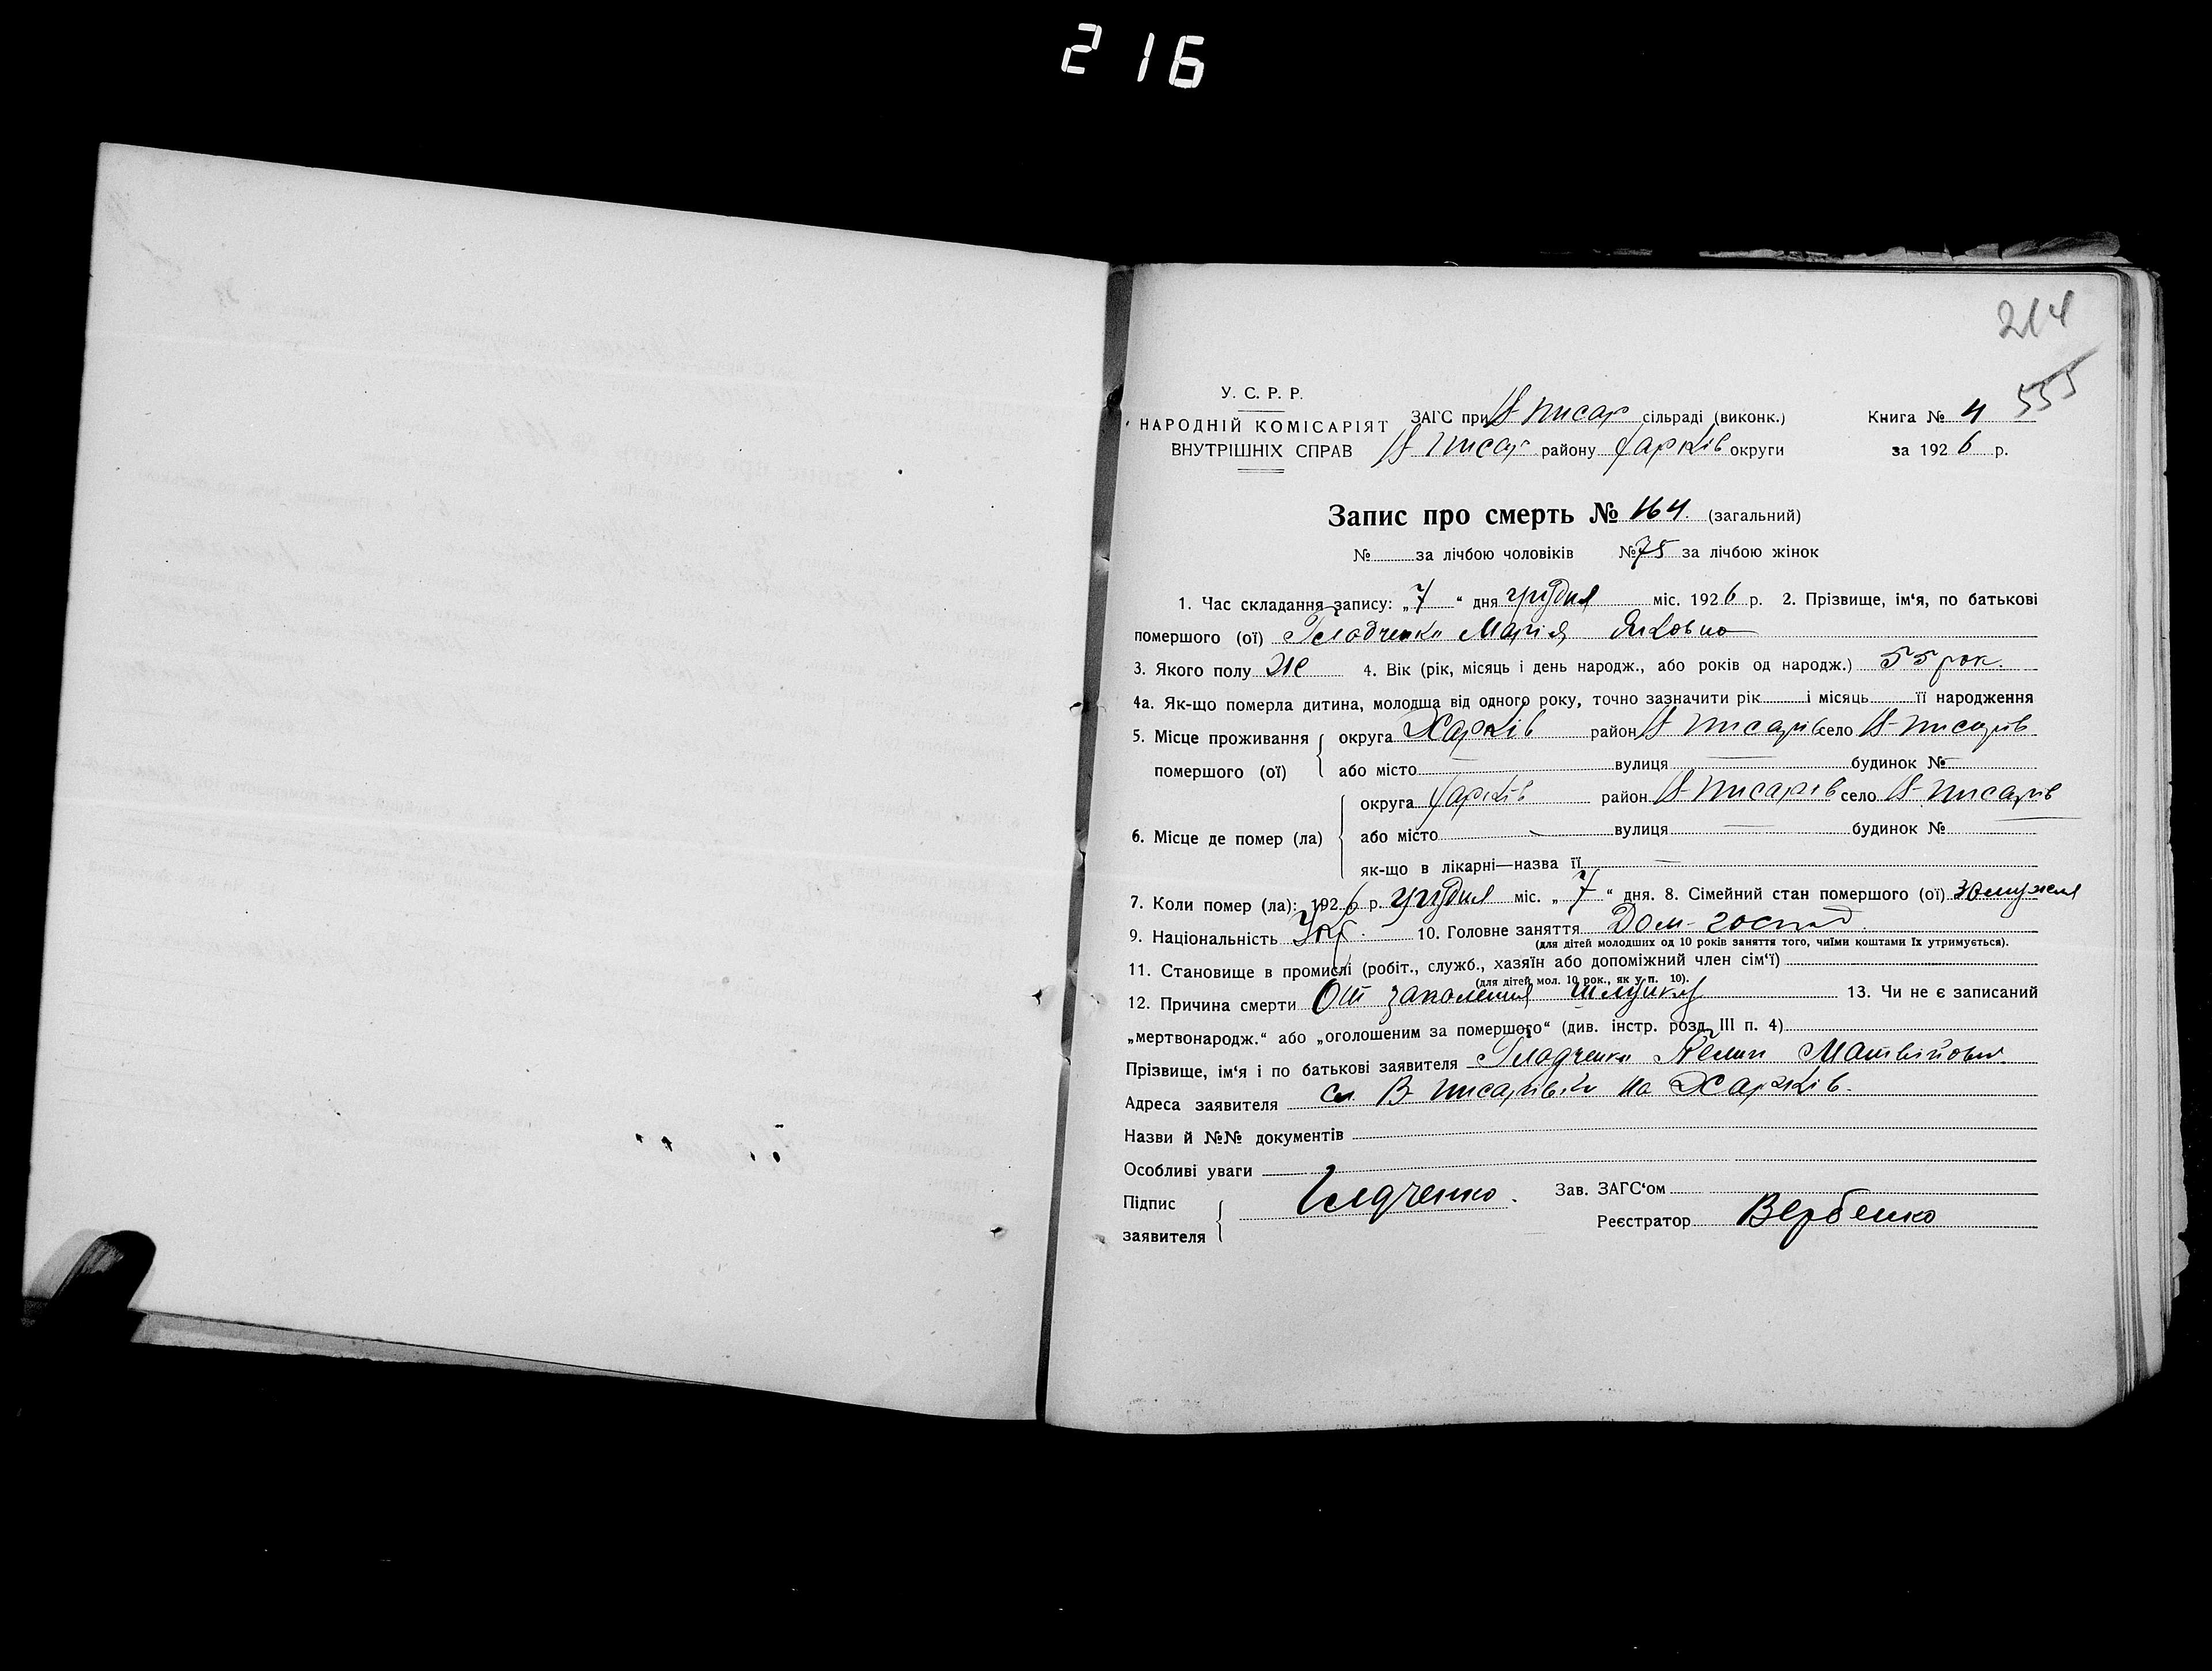 216
214
555
У. С. Р. Р.
НАРОДНІЙ КОМІСАРІЯТ
ВНУТРІШНІХ СПРАВ
ЗАГС при В-Писар сільраді (виконк.)
В-Писар району Харків округи
Книга № 4
за 1926 р.
Запис про смерть № 164. (загальний)
№ за лічбою чоловіків №75 за лічбою жінок
1. Час складання запису: „7“ дня грудня міс. 1926 р. 2. Прізвище, ім‘я, по батькові
помершого (ої) Гладченко Марія Яковна
3. Якого полу Ж 4. Вік (рік, місяць і день народж., або років од народж.) 55 рок.
4а. Як-що померла дитина, молодша від одного року, точно зазначити рік і місяць її народження
5. Місце проживання помершого (ої) округа Харків район В-Писарів село В-Писарів
або місто — вулиця — будинок № —
6. Місце де помер (ла) округа Харків район В-Писарів село В-Писарів
або місто — вулиця — будинок № —
як-що в лікарні—назва її —
7. Коли помер (ла): 1926 р. грудня міс. „7“ дня. 8. Сімейний стан помершого (ої) замужня
9. Національність Укр. 10. Головне заняття Дом-господ.
(для дітей молодших од 10 років заняття того, чиїми коштами їх утримується).
11. Становище в промислі (робіт., служб., хазяїн або допоміжний член сім‘ї)
(для дітей мол. 10 рок., як у п. 10).
12. Причина смерти От запаления шлунка 13. Чи не є записаний
„мертвонародж.“ або „оголошеним за помершого“ (див. інстр. розд. III п. 4)
Прізвище, ім‘я і по батькові заявителя Гладченко Матвійович
Адреса заявителя сл. В-Писарівка на Харків.
Назви й №№ документів
Особливі уваги
Підпис заявителя Гладченко.
Зав. ЗАГС‘ом
Реєстратор Вербенко